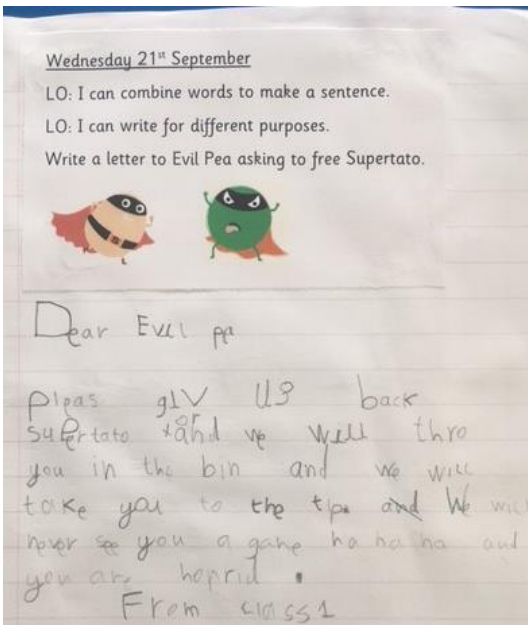 Wednesday 21st September
LO: I can combine words to make a sentence.
LO: I can write for different purposes.
Write a letter to Evil Pea asking to free Supertato.
Dear Evil pa
pleas giv us back
supertato or we will thro
you in the bin and we will
take you to the tip and We will
never see you a gane ha ha ha and
you are horrid.
From class 1